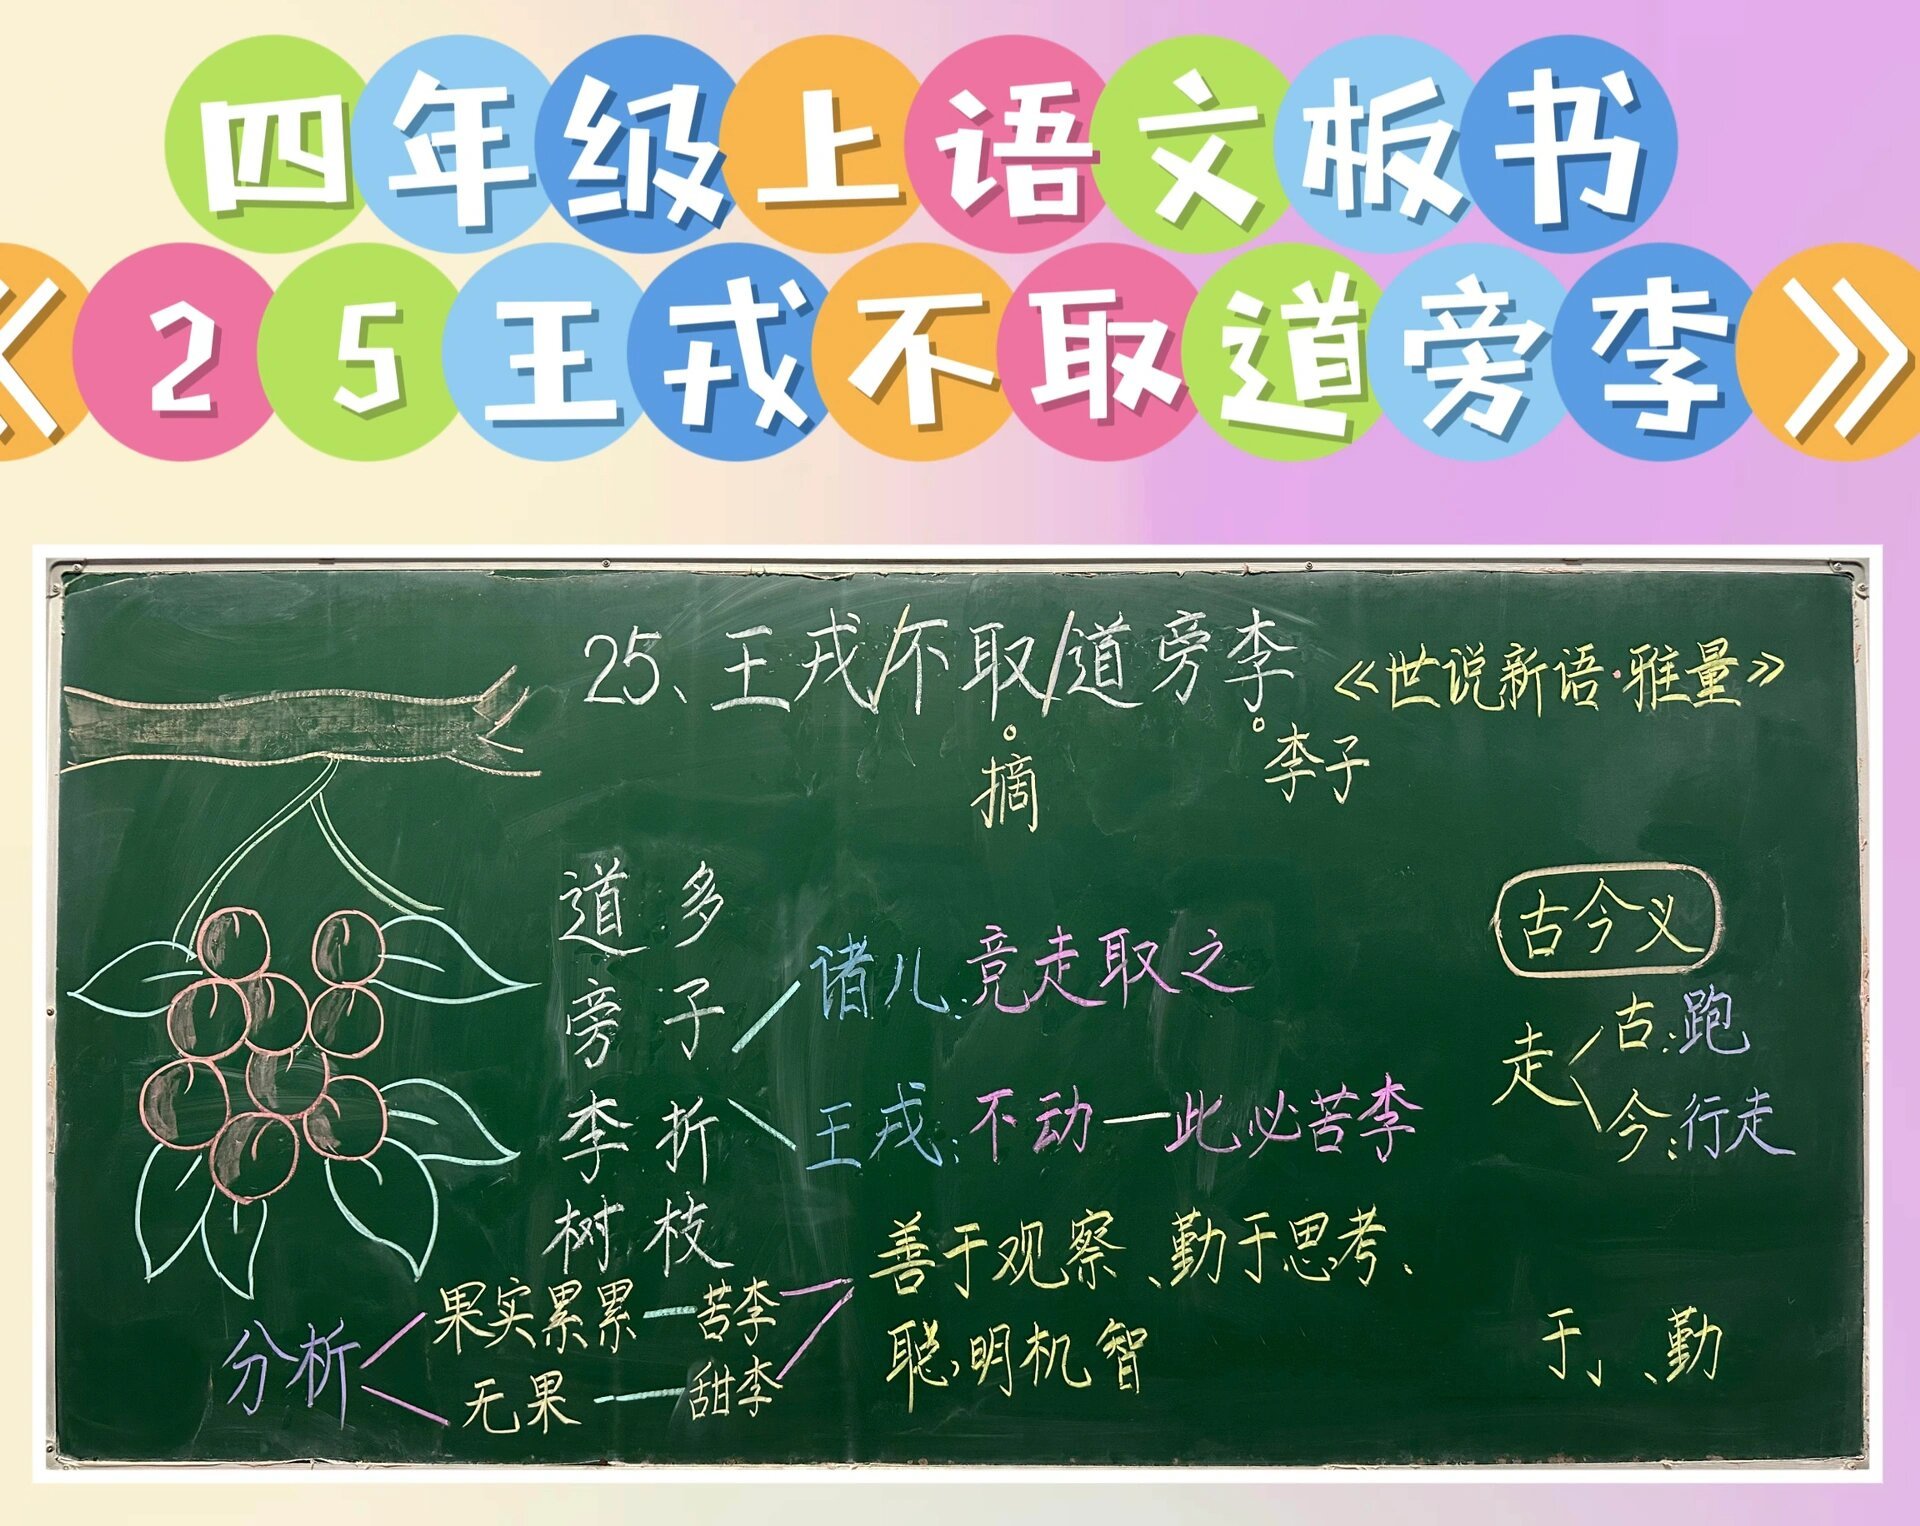 四年级上语文板书
《25王戎不取道旁李》
25、王戎/不取/道旁李 《世说新语·雅量》
摘
李子
道旁李树
多子折枝
诸儿:竞走取之
王戎:不动—此必苦李
古今义
走
古:跑
今:行走
善于观察、勤于思考、
聪明机智
分析
果实累累—苦李
无果—甜李
于、、勤